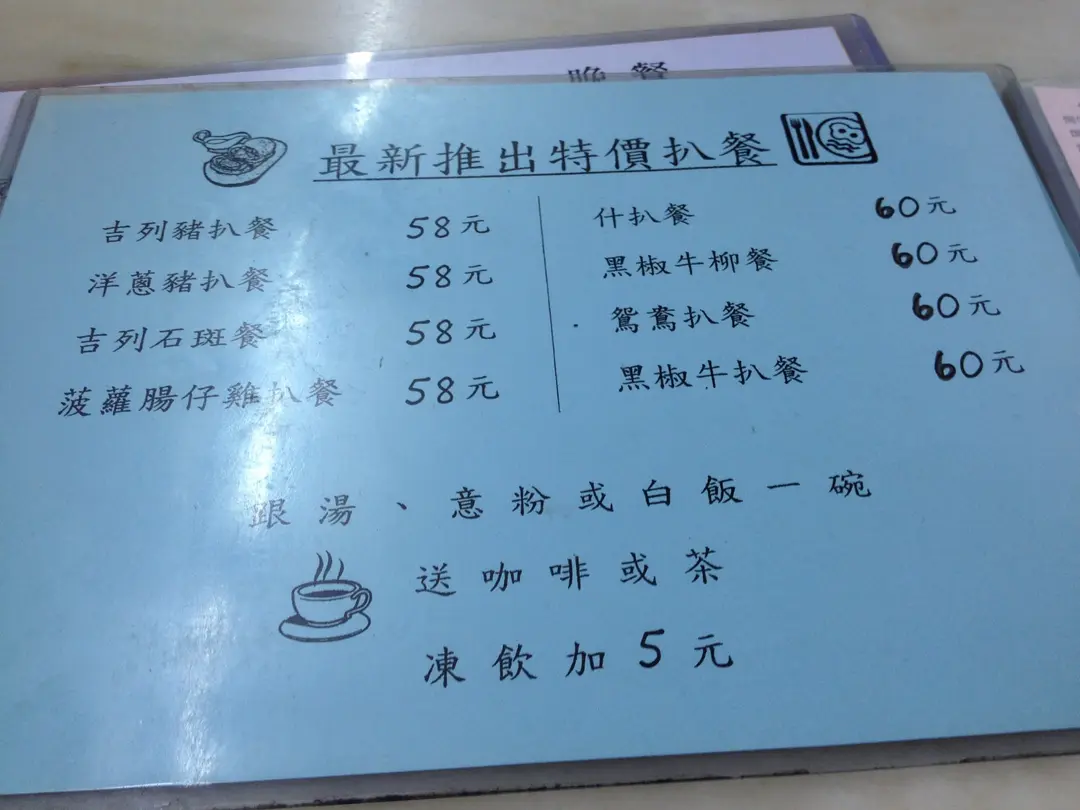 晚餐
最新推出特價扒餐
吉列豬扒餐 58元
洋蔥豬扒餐 58元
吉列石斑餐 58元
菠蘿腸仔雞扒餐 58元
什扒餐 60元
黑椒牛柳餐 60元
鴛鴦扒餐 60元
黑椒牛扒餐 60元
跟湯、意粉或白飯一碗
送咖啡或茶
凍飲加5元